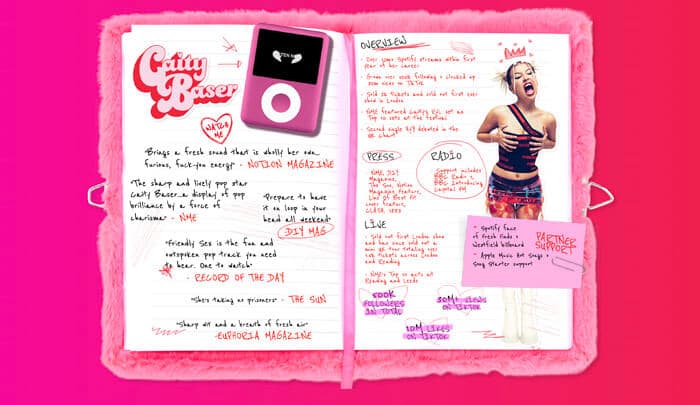 Caity
Baser
WATCH
ME
"Brings a fresh sound that is wholly her own
furious, fuck-you energy" - NOTION MAGAZINE
"The sharp and lively pop star
Caity Baser... a display of pop
brilliance by a force of
charisma" - NME
"Prepare to have
it on loop in your
head all weekend"
DIY MAG
"Friendly Sex is the fun and
outspoken pop track you need
to hear. One to watch"
- RECORD OF THE DAY
"She's taking no prisoners" - THE SUN
"Sharp wit and a breath of fresh air"
- EUPHORIA MAGAZINE
OVERVIEW
- Over Spotify streams within first
year of her career
- Grown over following + clocked up
views on TikTok
- Sold tickets and sold out first ever
show in London
- NME featured Caity's set as
Top 10 sets at the festival
- Second single debuted in the
UK chart
PRESS
- NME, DIY
Magazine,
The Sun, Notion
Magazine feature,
Line Of Best Fit
cover feature,
CLASH,
RADIO
Support includes
BBC Radio 1,
BBC Introducing
Capital FM
LIVE
- Sold out first London show
and has since sold out a
mini UK tour totalling over
tickets across London
and Reading
- NME's Top 10 acts at
Reading and Leeds
500K
FOLLOWERS
IN TOTAL
30M+ VIEWS
ON TIKTOK
10M LIKES
ON TIKTOK
- Spotify face
of Fresh Finds +
Westfield billboard
- Apple Music Hot Songs +
Song Starter support
PARTNER
SUPPORT